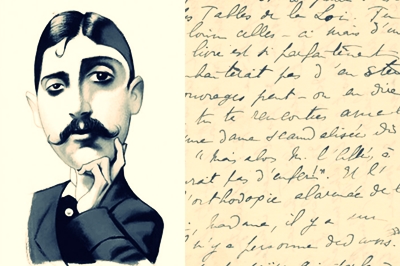 es Tables de la Loi. Tu
celles-ci mais d'un
livre est si parfaitement
pas d'en
ouvrages peut-on en dire
tu te rencontres avec
une dame scandalisée dis
"mais alors M. l'Abbé, à
rait pas d'enfer". Et l'
'orthodoxie alarmée de l
madame, il y a un
n'y a personne dedans.